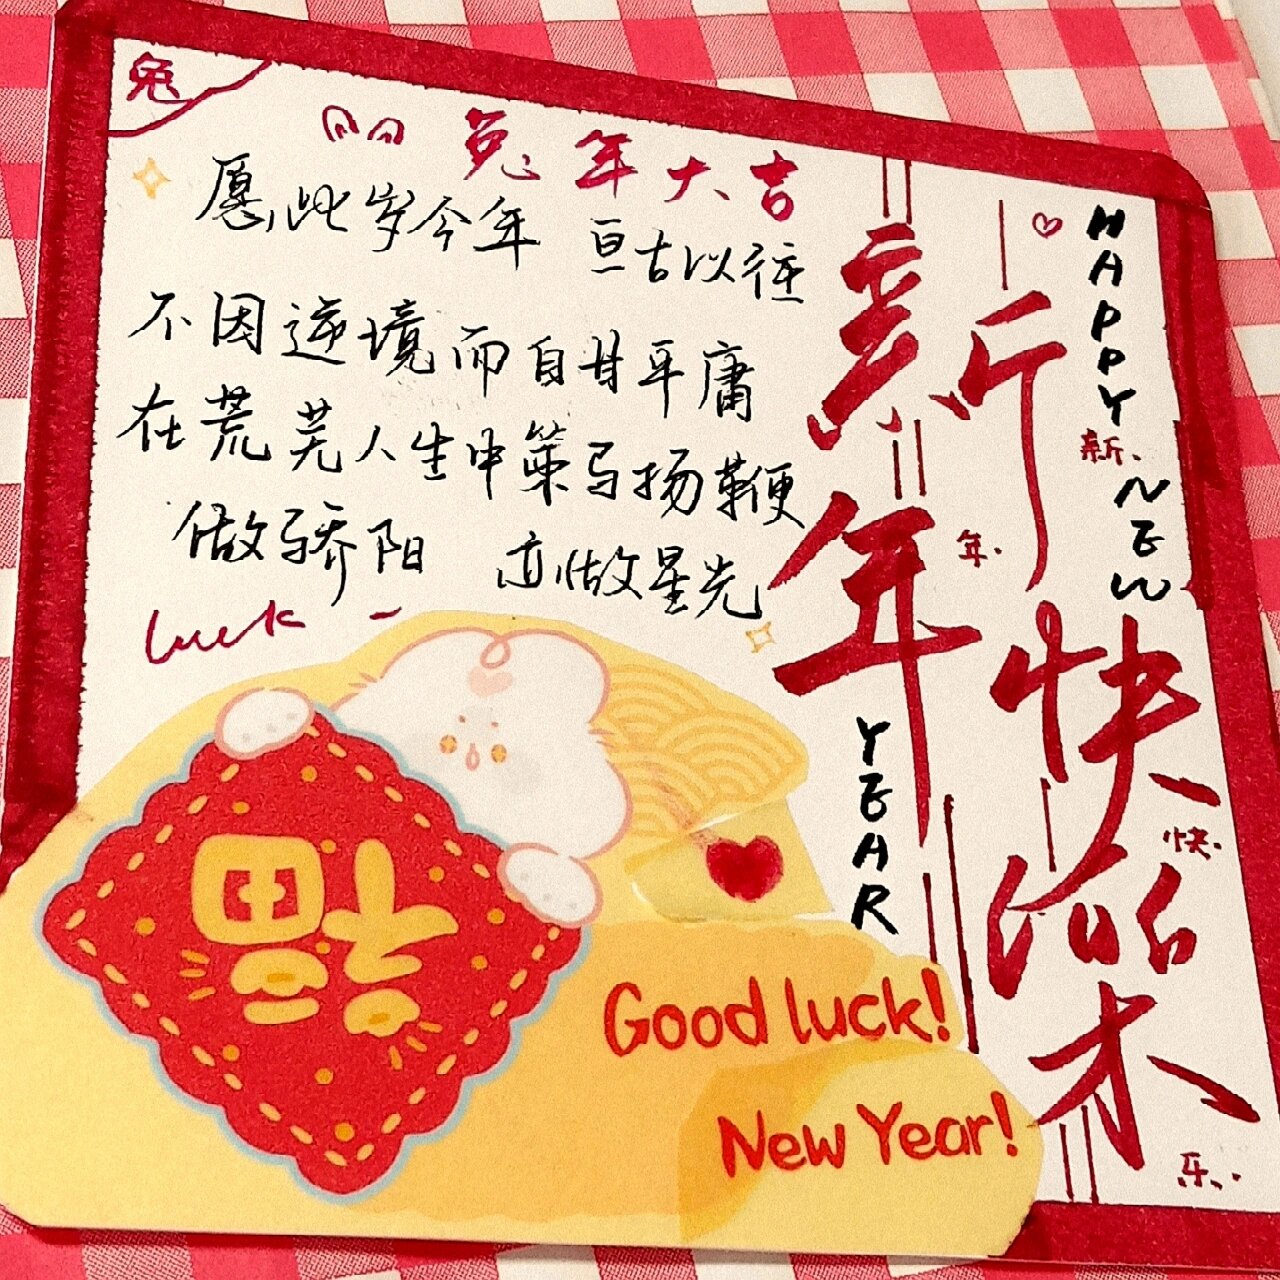 兔
兔年大吉
愿此岁今年 亘古以往
不因逆境而自甘平庸
在荒芜人生中策马扬鞭
做骄阳 亦做星光
luck
新年快樂
HAPPY
NEW
YEAR
新.
年.
快.
乐..
福
Good luck!
New Year!